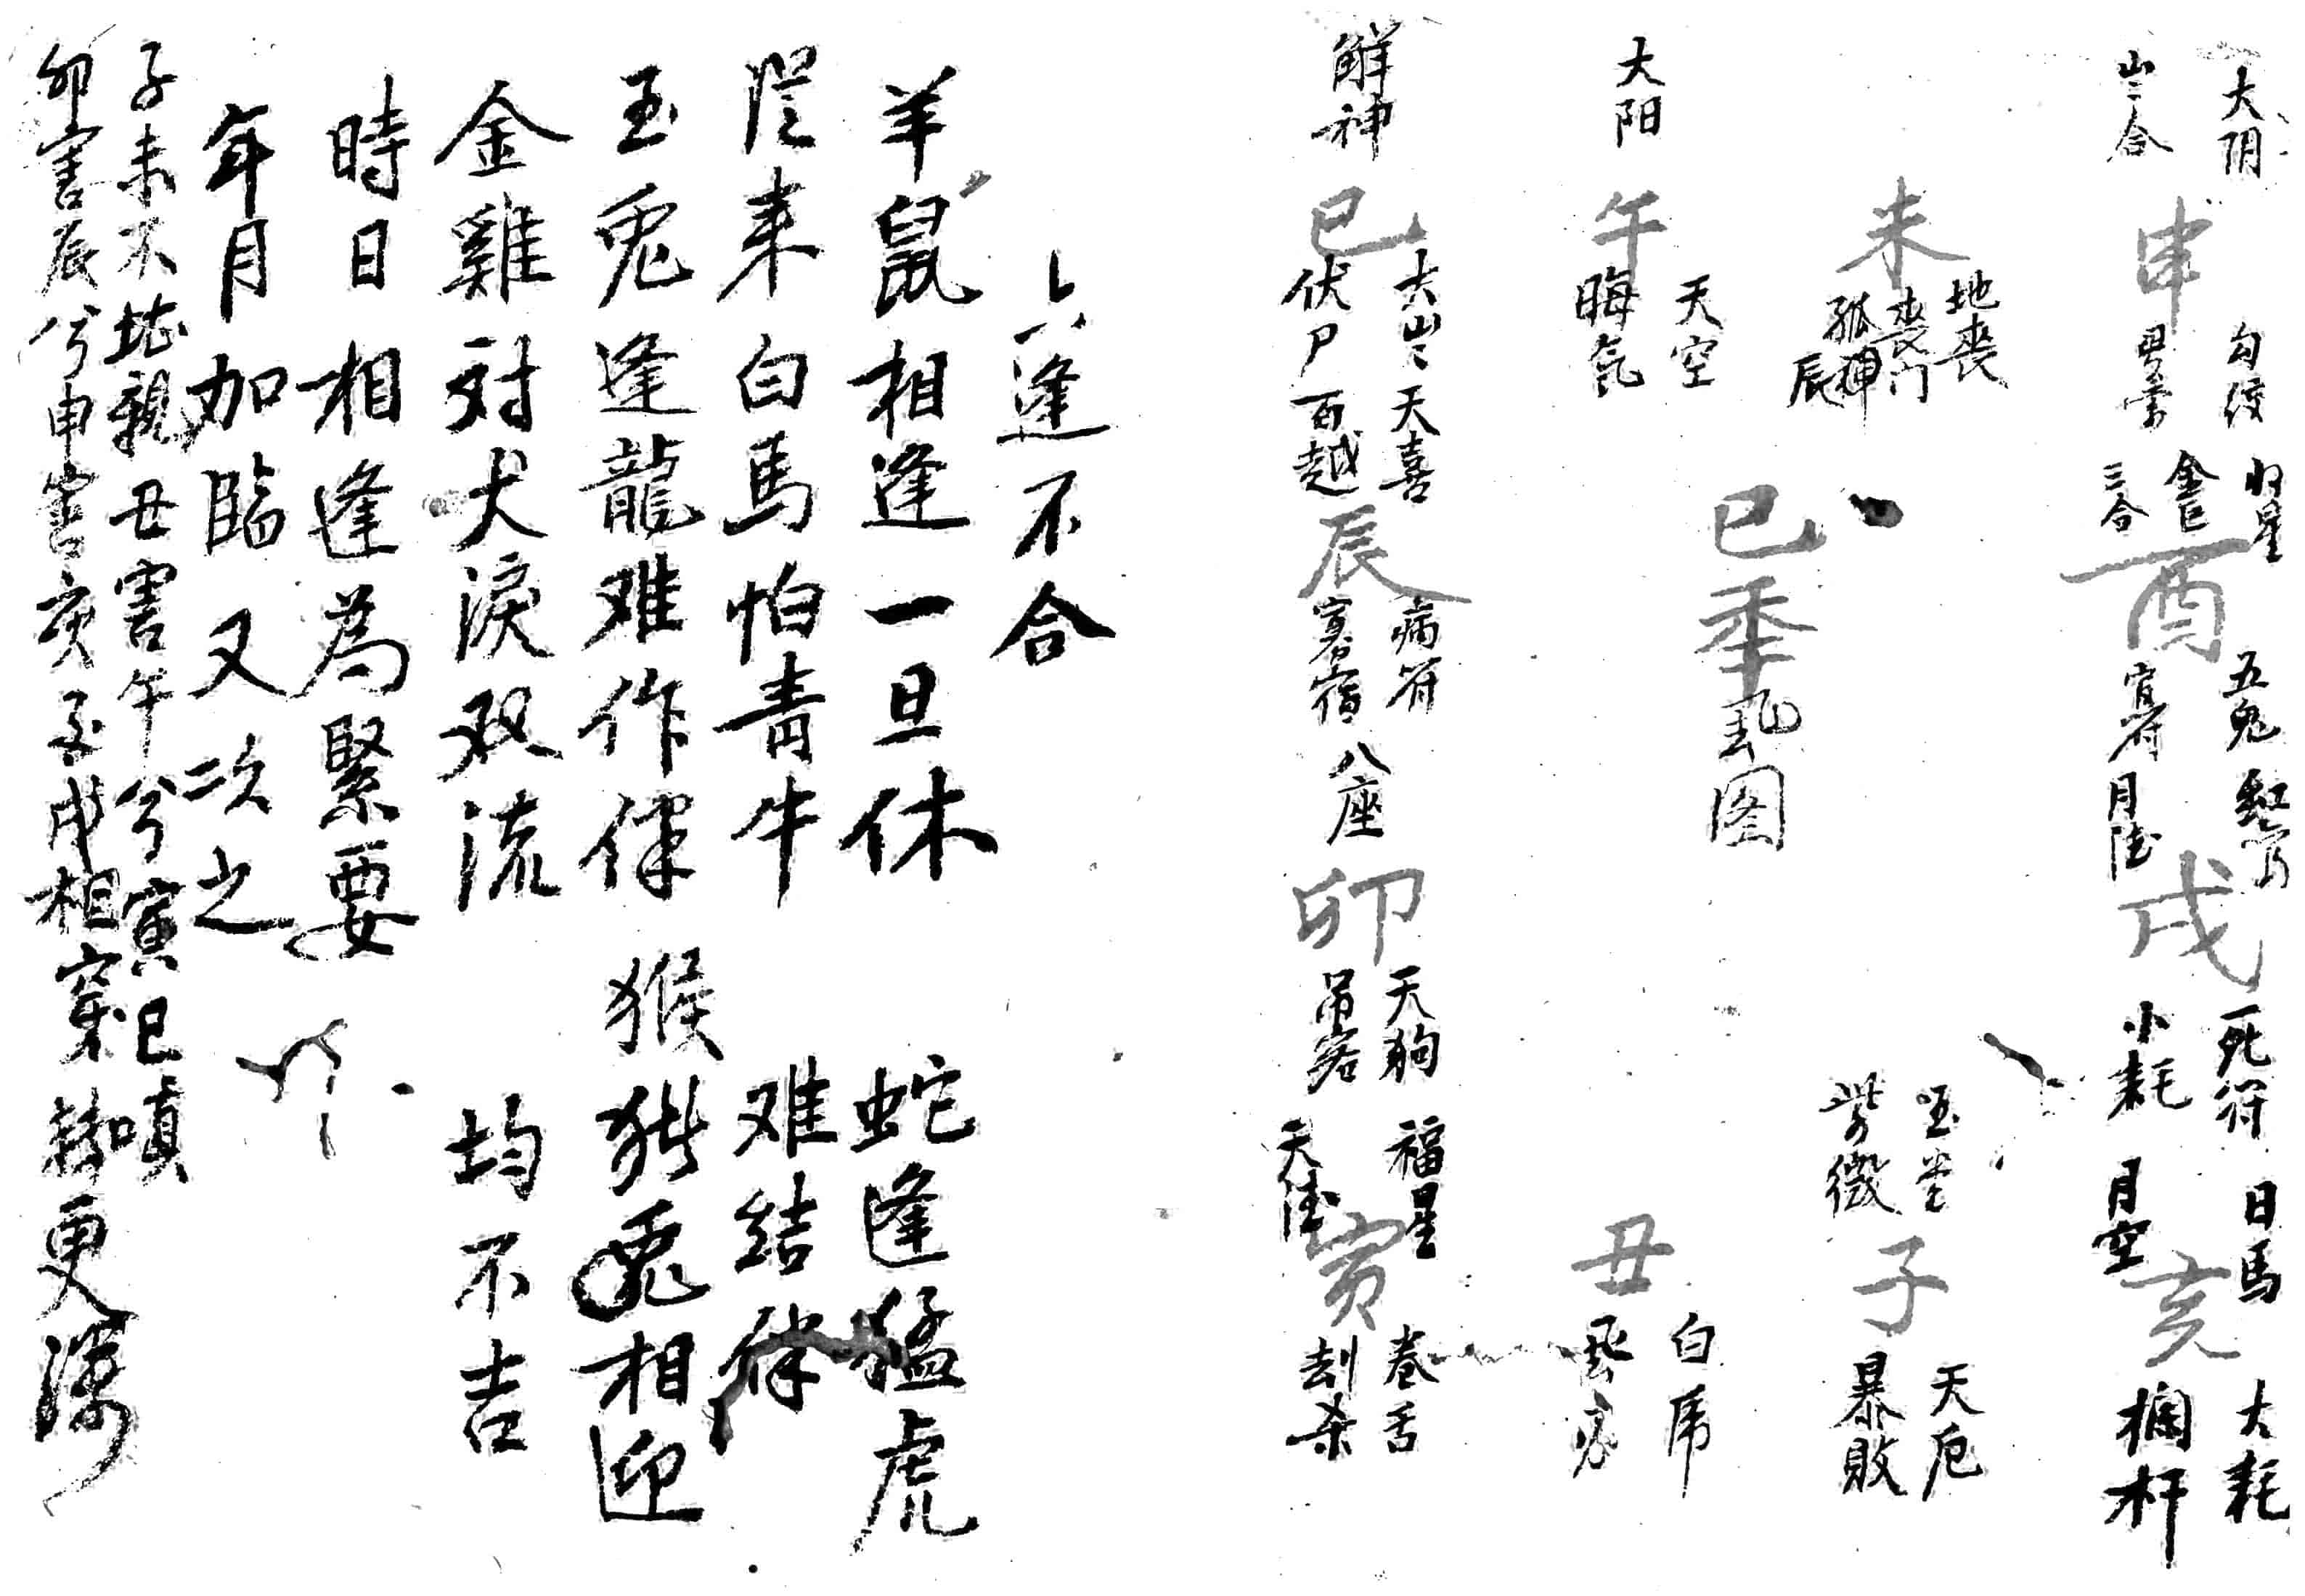 大阴
岁合
申
勾绞
将星
金匮
三合
酉
五鬼
月德
戌
死符
小耗
日马
月空
亥
大耗
栏杆
未
地丧
丧门
孤神
辰
巳年
图
紫微
子
天厄
暴败
大阳
午
天空
晦气
丑
白虎
解神
巳
大岁 天喜
伏尸 百越
辰
病符
寡宿 八座
卯
天狗 福星
吊客 天德
寅
卷舌
劫杀
逢不合
羊鼠相逢一旦休 蛇逢猛虎
从来白马怕青牛 难结伴
玉兔逢龍难作伴 猴猪 相迎
金雞对犬淚双流 均不吉
時日相逢為緊要
年月加臨又次之
子未不 親丑害午兮寅巳嗔
卯害辰兮申害亥 戌相穿 更深